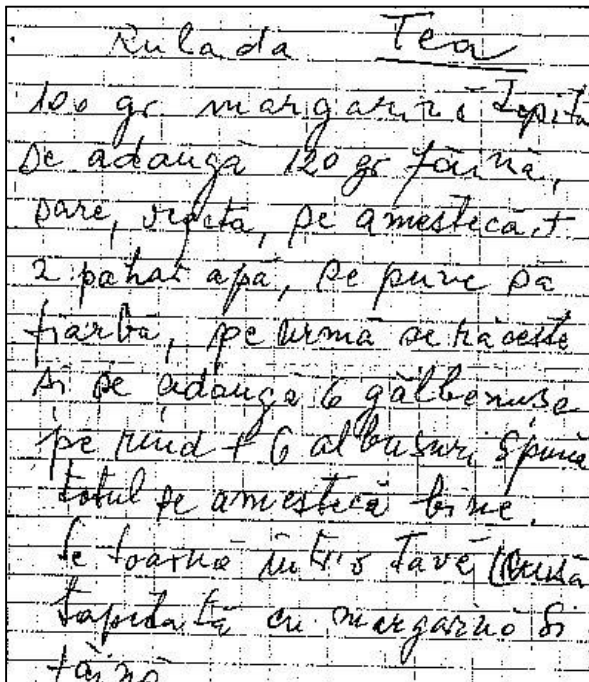 Rulada Tea
100 gr margarină topită
se adaugă 120 gr făină,
sare, se amestecă, +
2 pahar apă, se pune să
fiarbă, pe urmă se răcește
și se adaugă 6 gălbenușe
pe rînd + 6 albușuri spumă
totul se amestecă bine.
Se toarnă într'o tavă (
tapetată cu margarină și
făină